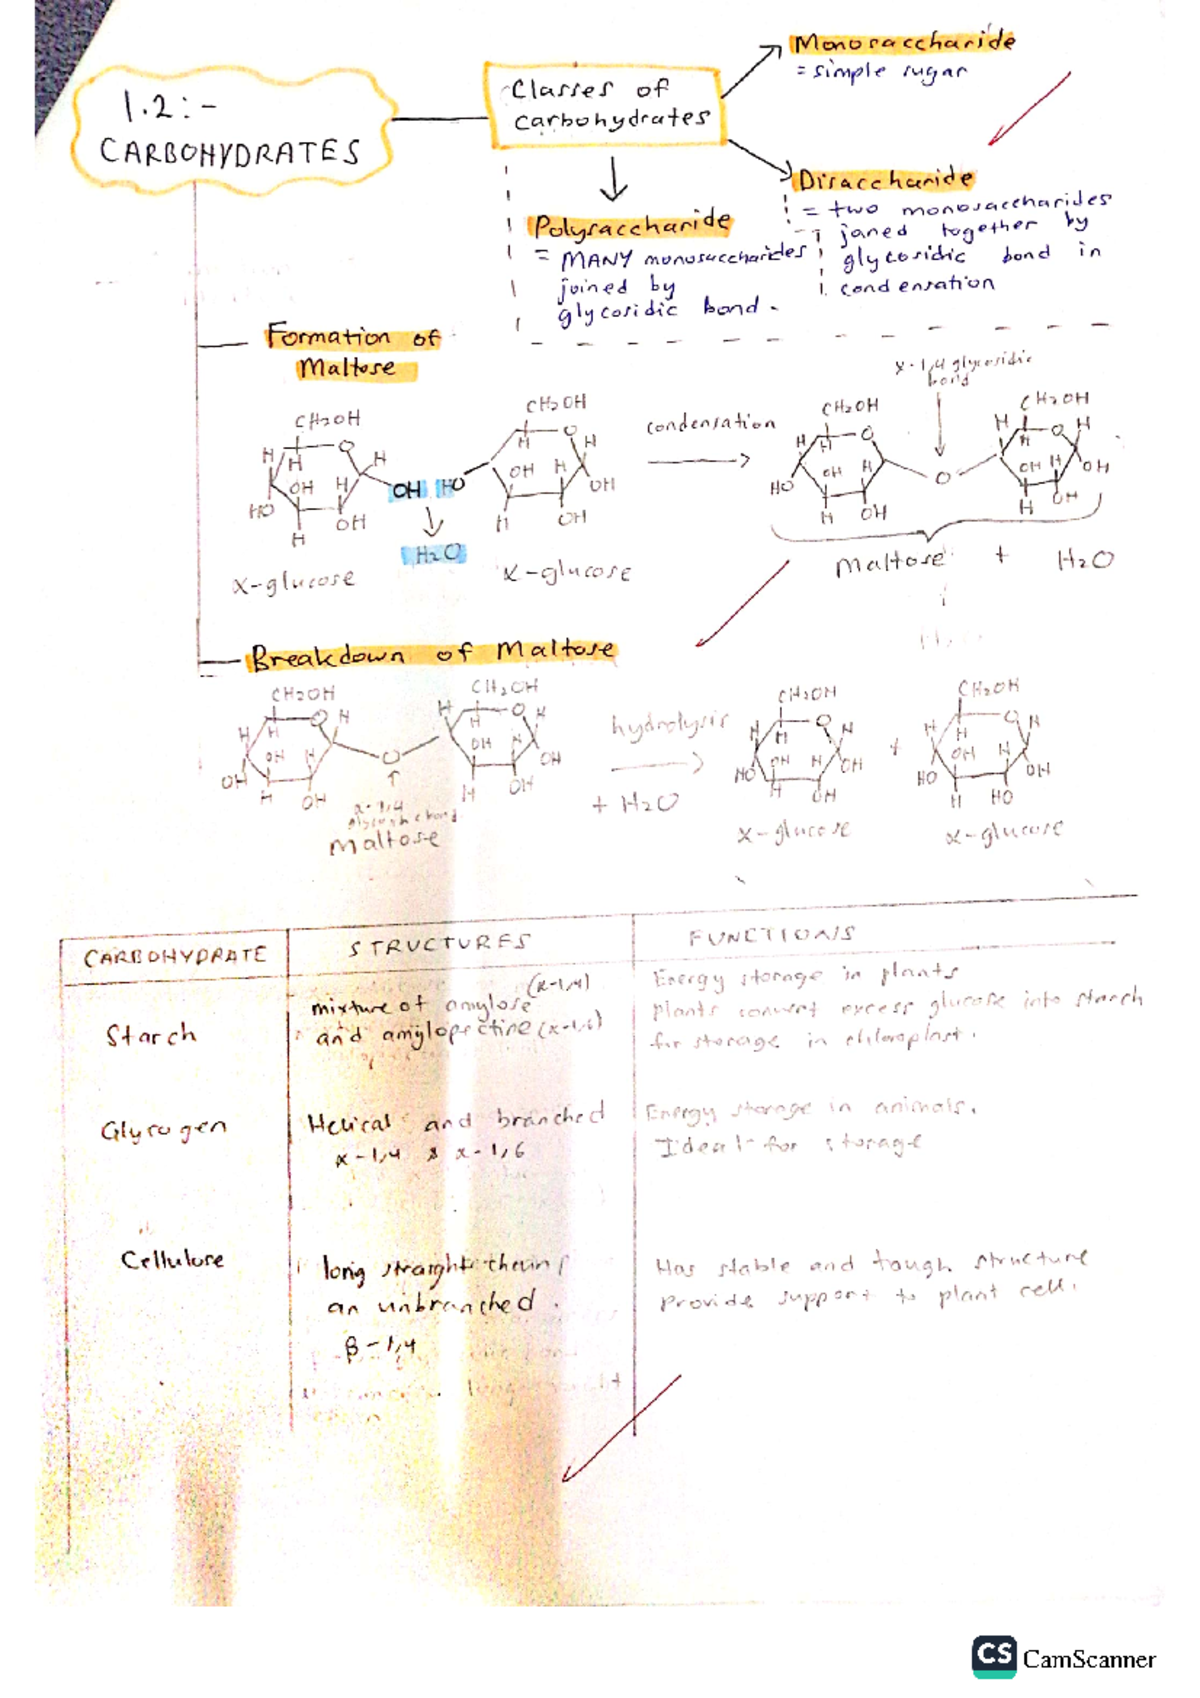 1.2:-
CARBOHYDRATES
Classes of
carbohydrates
Monosaccharide
= simple sugar
Disaccharide
= two monosaccharides
joned together by
glycosidic bond in
condensation
Polysaccharide
= MANY monosaccharides
joined by
glycosidic bond.
Formation of
Maltose
CH2OH
O
H
H
H
OH
H
HO
OH
H
OH
HO
H2O
α-glucose
CH2OH
O
H
H
OH
H
OH
H
OH
α-glucose
condensation
α-1,4 glycosidic
bond
CH2OH
O
H
H
OH
H
HO
H
OH
O
CH2OH
H
O
H
OH
H
OH
H
OH
Maltose + H2O
Breakdown of Maltose
CH2OH
O
H
H
H
OH
H
OH
H
OH
O
α-1,4
glycosidic bond
Maltose
CH2OH
H
O
H
H
OH
H
OH
H
OH
hydrolysis
+ H2O
CH2OH
O
H
H
H
OH
H
OH
HO
H
OH
α-glucose
+
CH2OH
O
H
H
H
OH
H
OH
HO
H
HO
α-glucose
CARBOHYDRATE
STRUCTURES
FUNCTIONS
Starch
(α-1,4)
mixture of amylose
and amylopectine (α-1,6)
Energy storage in plants
plants convert excess glucose into starch
for storage in chloroplast.
Glycogen
Helical and branched
α-1,4 & α-1,6
Energy storage in animals.
Ideal for storage
Cellulose
long straight chain
an unbranched.
β-1,4
Has stable and tough structure
Provide support to plant cell.
CS CamScanner